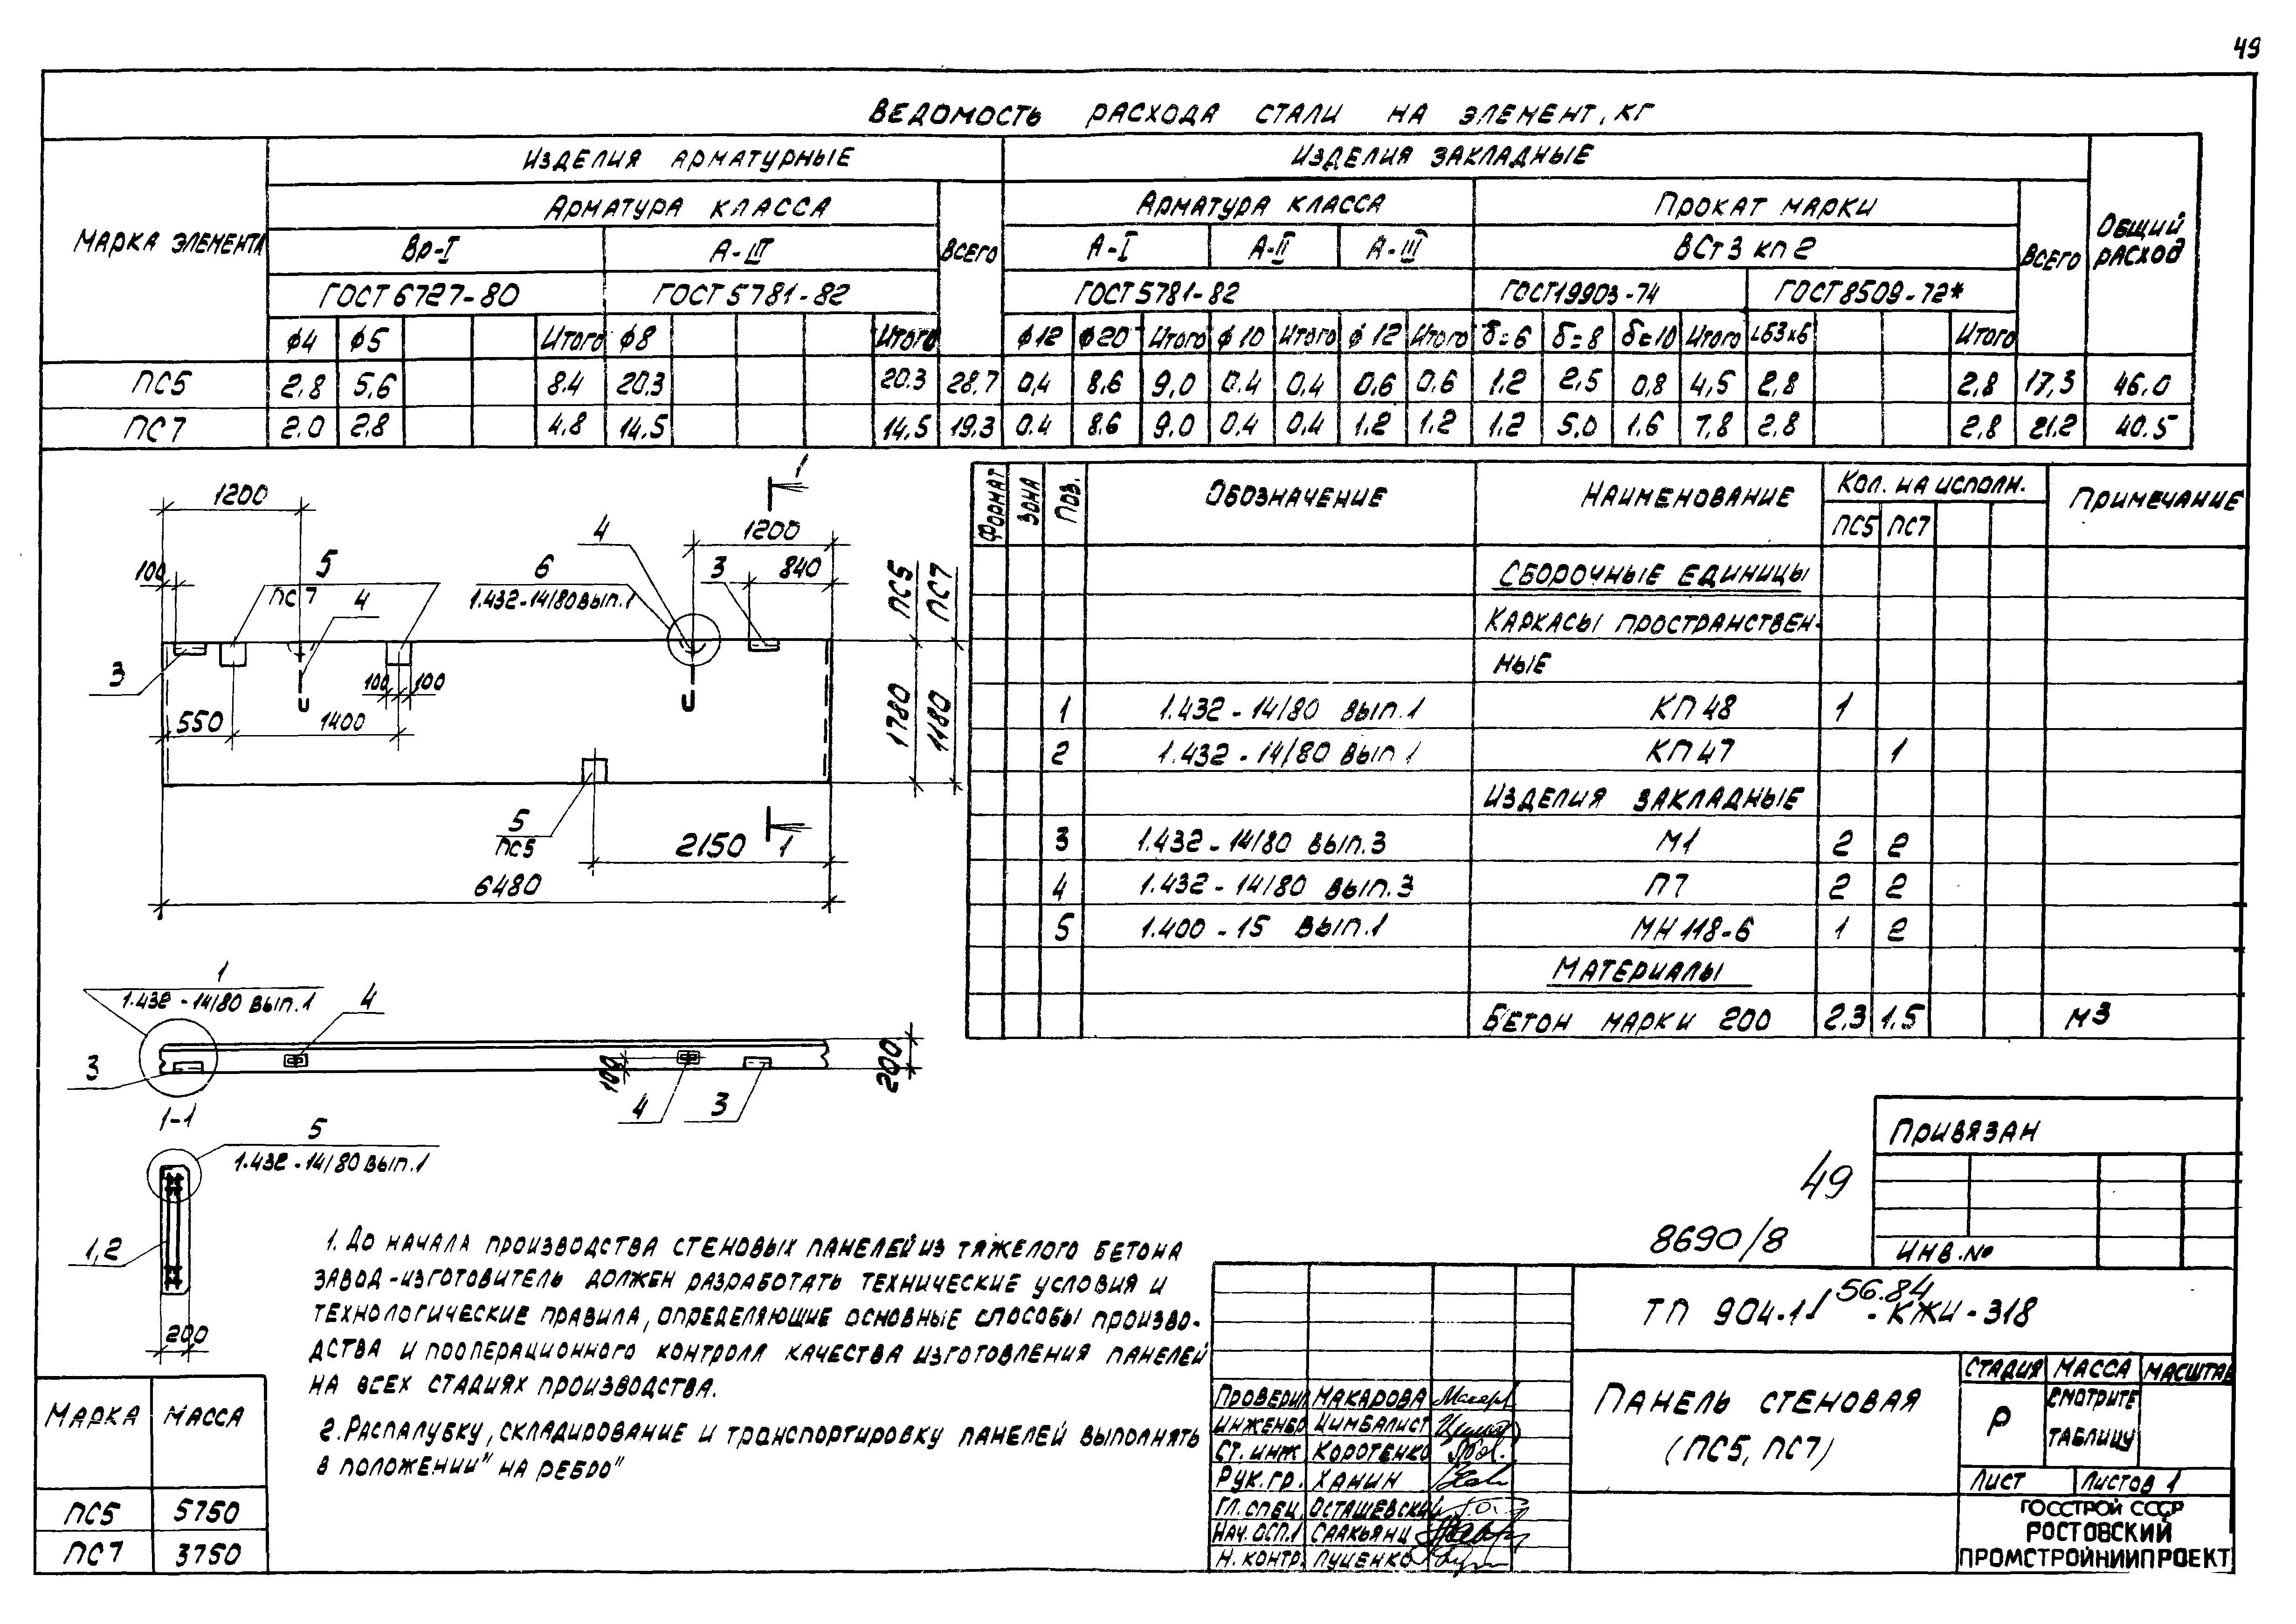 49
ВЕДОМОСТЬ РАСХОДА СТАЛИ НА ЭЛЕМЕНТ, КГ
МАРКА ЭЛЕМЕНТА
ИЗДЕЛИЯ АРМАТУРНЫЕ
ИЗДЕЛИЯ ЗАКЛАДНЫЕ
ОБЩИЙ РАСХОД
АРМАТУРА КЛАССА
ВСЕГО
АРМАТУРА КЛАССА
ПРОКАТ МАРКИ
ВСЕГО
Вр-I А-III А-I А-II А-III ВСт3 кп2
ГОСТ 6727-80 ГОСТ 5781-82 ГОСТ 5781-82 ГОСТ 19903-74 ГОСТ 8509-72*
ф4 ф5 Итого ф8 Итого ф12 ф20 Итого ф10 Итого ф12 Итого δ=6 δ=8 δ=10 Итого L63х6 Итого
ПС5 2,8 5,6 8.4 20.3 20.3 28.7 0,4 8.6 9,0 0.4 0,4 0,6 0,6 1.2 2,5 0,8 4,5 2,8 2.8 17,3 46.0
ПС7 2.0 2.8 4.8 14.5 14,5 19.3 0.4 8.6 9.0 0,4 0.4 1.2 1.2 1.2 5.0 1.6 7,8 2.8 2.8 21.2 40.5
1200
1
4
1200
100
5
ПС7
4
6
1.432-14/80 ВЫП.1
3
840
ПС5
ПС7
3
100
100
550
1400
1780
1180
5
ПС5
2150
1
6480
ФОРМАТ
ЗОНА
ПОЗ.
ОБОЗНАЧЕНИЕ
НАИМЕНОВАНИЕ
КОЛ. НА ИСПОЛН.
ПРИМЕЧАНИЕ
ПС5 ПС7
СБОРОЧНЫЕ ЕДИНИЦЫ
КАРКАСЫ ПРОСТРАНСТВЕН-
НЫЕ
1 1.432-14/80 ВЫП.1 КП 48 1
2 1.432-14/80 ВЫП 1 КП 47 1
ИЗДЕЛИЯ ЗАКЛАДНЫЕ
3 1.432-14/80 ВЫП.3 М1 2 2
4 1.432-14/80 ВЫП.3 П7 2 2
5 1.400-15 ВЫП.1 МН 118-6 1 2
МАТЕРИАЛЫ
БЕТОН МАРКИ 200 2,3 1,5 М3
1
1.432-14/80 ВЫП.1
4
3
100
200
4
3
1-1
5
1.432-14/80 ВЫП.1
1,2
200
1. ДО НАЧАЛА ПРОИЗВОДСТВА СТЕНОВЫХ ПАНЕЛЕЙ ИЗ ТЯЖЕЛОГО БЕТОНА
ЗАВОД-ИЗГОТОВИТЕЛЬ ДОЛЖЕН РАЗРАБОТАТЬ ТЕХНИЧЕСКИЕ УСЛОВИЯ И
ТЕХНОЛОГИЧЕСКИЕ ПРАВИЛА, ОПРЕДЕЛЯЮЩИЕ ОСНОВНЫЕ СПОСОБЫ ПРОИЗВО-
ДСТВА И ПООПЕРАЦИОННОГО КОНТРОЛЯ КАЧЕСТВА ИЗГОТОВЛЕНИЯ ПАНЕЛЕЙ
НА ВСЕХ СТАДИЯХ ПРОИЗВОДСТВА.
2. РАСПАЛУБКУ, СКЛАДИРОВАНИЕ И ТРАНСПОРТИРОВКУ ПАНЕЛЕЙ ВЫПОЛНЯТЬ
В ПОЛОЖЕНИИ "НА РЕБРО"
МАРКА МАССА
ПС5 5750
ПС7 3750
ПРИВЯЗАН
ИНВ.№
49
8690/8
ТП 904-1-56.84 - КЖИ-318
ПРОВЕРИЛ МАКАРОВА
ИНЖЕНЕР ЦИМБАЛИСТ
СТ. ИНЖ КОРОТЕНКО
РУК.ГР. ХАНИН
ГЛ.СПЕЦ ОСТАШЕВСКИЙ
НАЧ.ОСП.1 СААКЬЯНЦ
Н. КОНТР. ЛУЦЕНКО
ПАНЕЛЬ СТЕНОВАЯ
(ПС5, ПС7)
СТАДИЯ МАССА МАСШТАБ
Р СМОТРИТЕ
ТАБЛИЦУ
ЛИСТ ЛИСТОВ 1
ГОССТРОЙ СССР
РОСТОВСКИЙ
ПРОМСТРОЙНИИПРОЕКТ